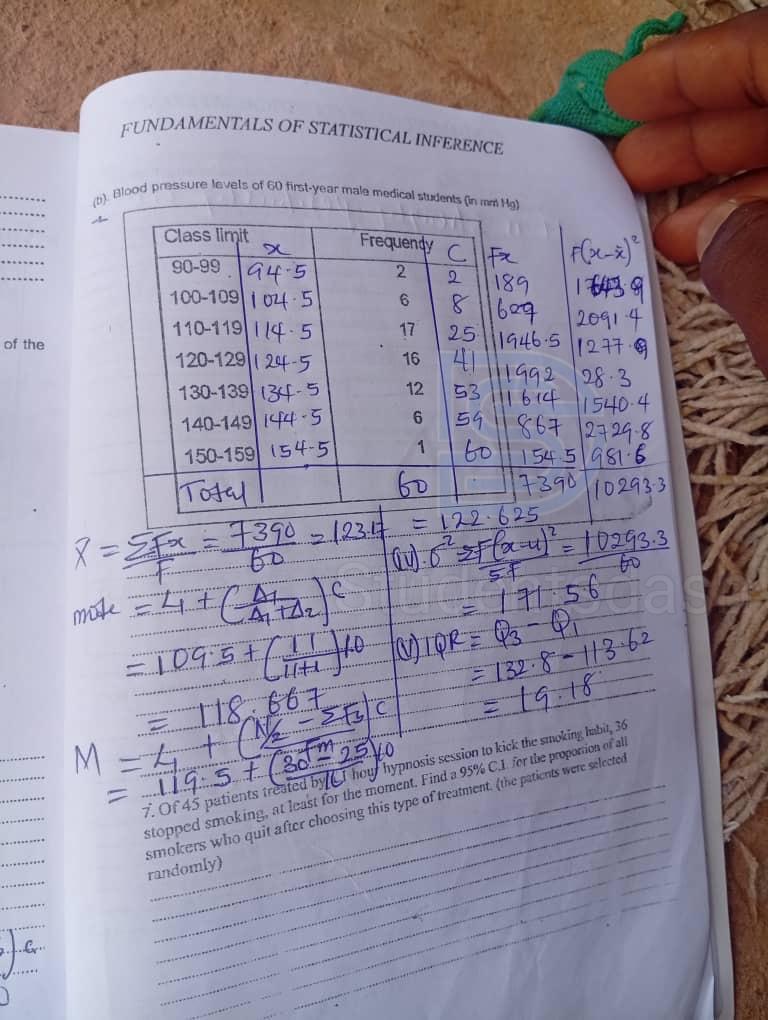 of the
FUNDAMENTALS OF STATISTICAL INFERENCE
(b). Blood pressure levels of 60 first-year male medical students (in mm Hg)
Class limit x Frequency C Fx F(x-x̄)²
90-99 94.5 2 2 189
100-109 104.5 6 8 2091.4
110-119 114.5 17 25 1946.5 1277.9
120-129 124.5 16 41 1992 28.3
130-139 134.5 12 53 1614 1540.4
140-149 144.5 6 59 867 2729.8
150-159 154.5 1 60 154.5 981.6
Total 60 7390 10293.3
x̄ = ΣFx/F = 7390/60 = 123.17
mode = L1 + (Δ1/(Δ1+Δ2)) C
= 109.5 + (11/(11+1)) 10
= 118.667
M = L1 + ((N/2 - ΣFB)/Fm) C
= 119.5 + ((30 - 25)/16) 10
= 122.625
(iv). σ² = ΣF(x-u)²/ΣF = 10293.3/60
= 171.56
(v) IQR = Q3 - Q1
= 132.8 - 113.62
= 19.18
7. Of 45 patients treated by hour hypnosis session to kick the smoking habit, 36
stopped smoking, at least for the moment. Find a 95% C.I. for the proportion of all
smokers who quit after choosing this type of treatment. (the patients were selected
randomly)